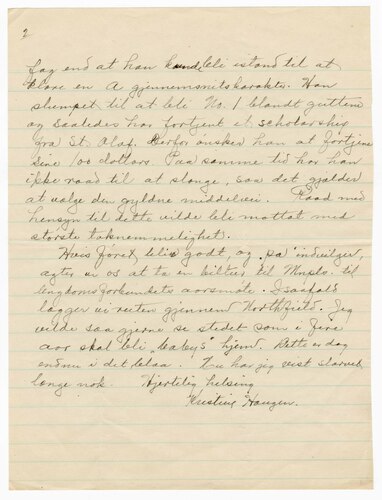 2
fag end at han kunde bli istand til at
klare en A gjennemsnitskarakter. Han
slumpet til at bli No. 1 blandt guttene
og saaledes har fortjent et scholarship
fra St. Olaf. Derfor ønsker han at fortjene
sine 100 dollars. Paa samme tid har han
ikke raad til at slange, saa det gjelder
at valge den gyldne middelvei. Raad med
hensyn til dette vilde bli mottat med
største taknemmelighet.
Hvis føret blir godt, og pa indvilger,
agter vi os at ta en biltur til Mnpls. til
ungdomsforbundets aarsmøte. I saafald
lagger vi veien gjennem Northfield. Jeg
vilde saa gjerne se stedet som i fire
aar skal bli "baby's" hjem. Dette er dog
endnu i det blaa. Nu har jeg vist slarvet
lange nok. Hjertelig hilsing
Kristine Haugen.